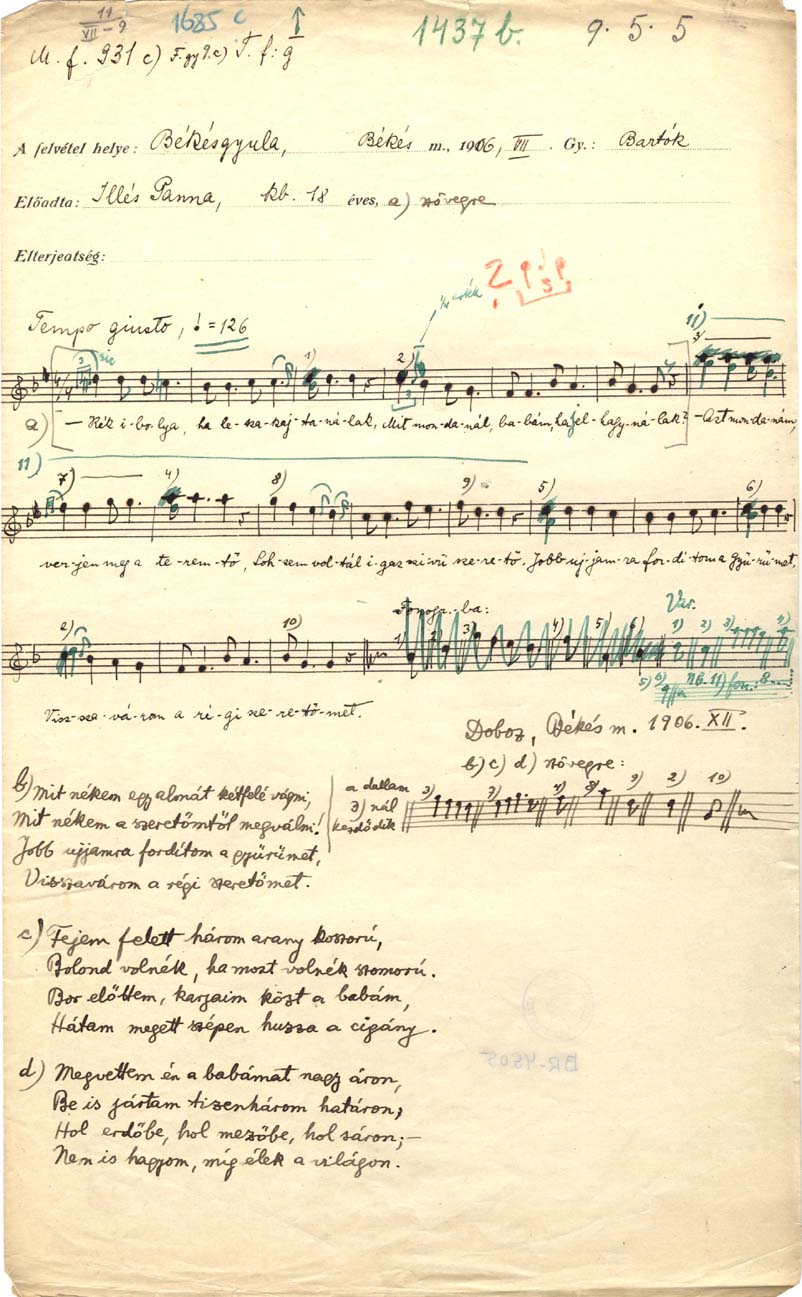 11
VII-9
1685 c
1437 b.
9. 5. 5
M. f. 931 c) F. gy 9. c) T. f: g
A felvétel helye: Békésgyula, Békés m., 1906, VII. Gy.: Bartók
Előadta: Illés Panna, kb. 18 éves, a) szövegre
Elterjeatség:
Tempo giusto, ♩ = 126
3 sic
1) 2) 3) 11)
a) — Kék i-bo-lya, ha le-sza-kaj-ta-ná-lak, Mit mon-da-nál, ba-bám, ha el-hagy-ná-lak? — Azt mon-da-nám,
11)
7) 4) 8) 9) 5) 6)
ver-jen meg a te-rem-tő, Soh-sem vol-tál i-gaz szi-vű sze-re-tő. Jobb uj-jam-ra for-di-tom a gyű-rű-met,
2) 10)
Var.
1) 2) 3)
Visz-sza-vá-rom a ré-gi sze-re-tő-met.
Doboz, Békés m. 1906. XII.
b) c) d) szövegre:
b) Mit nékem egy almát kétfelé vágni,
Mit nékem a szeretőmtől megválni!
Jobb ujjamra fordítom a gyűrűmet,
Visszavárom a régi szeretőmet.
a dallam
3) nál
kezdődik
3) 7) 9) 2) 10)
c) Fejem felett három arany koszorú,
Bolond volnék, ha most volnék szomorú.
Bor előttem, karjaim közt a babám,
Hátam megett szépen huzza a cigány.
d) Megvettem én a babámat nagy áron,
Be is jártam tizenhárom határon,
Hol erdőbe, hol mezőbe, hol sáron; —
Nem is hagyom, míg élek a világon.
BR-4505